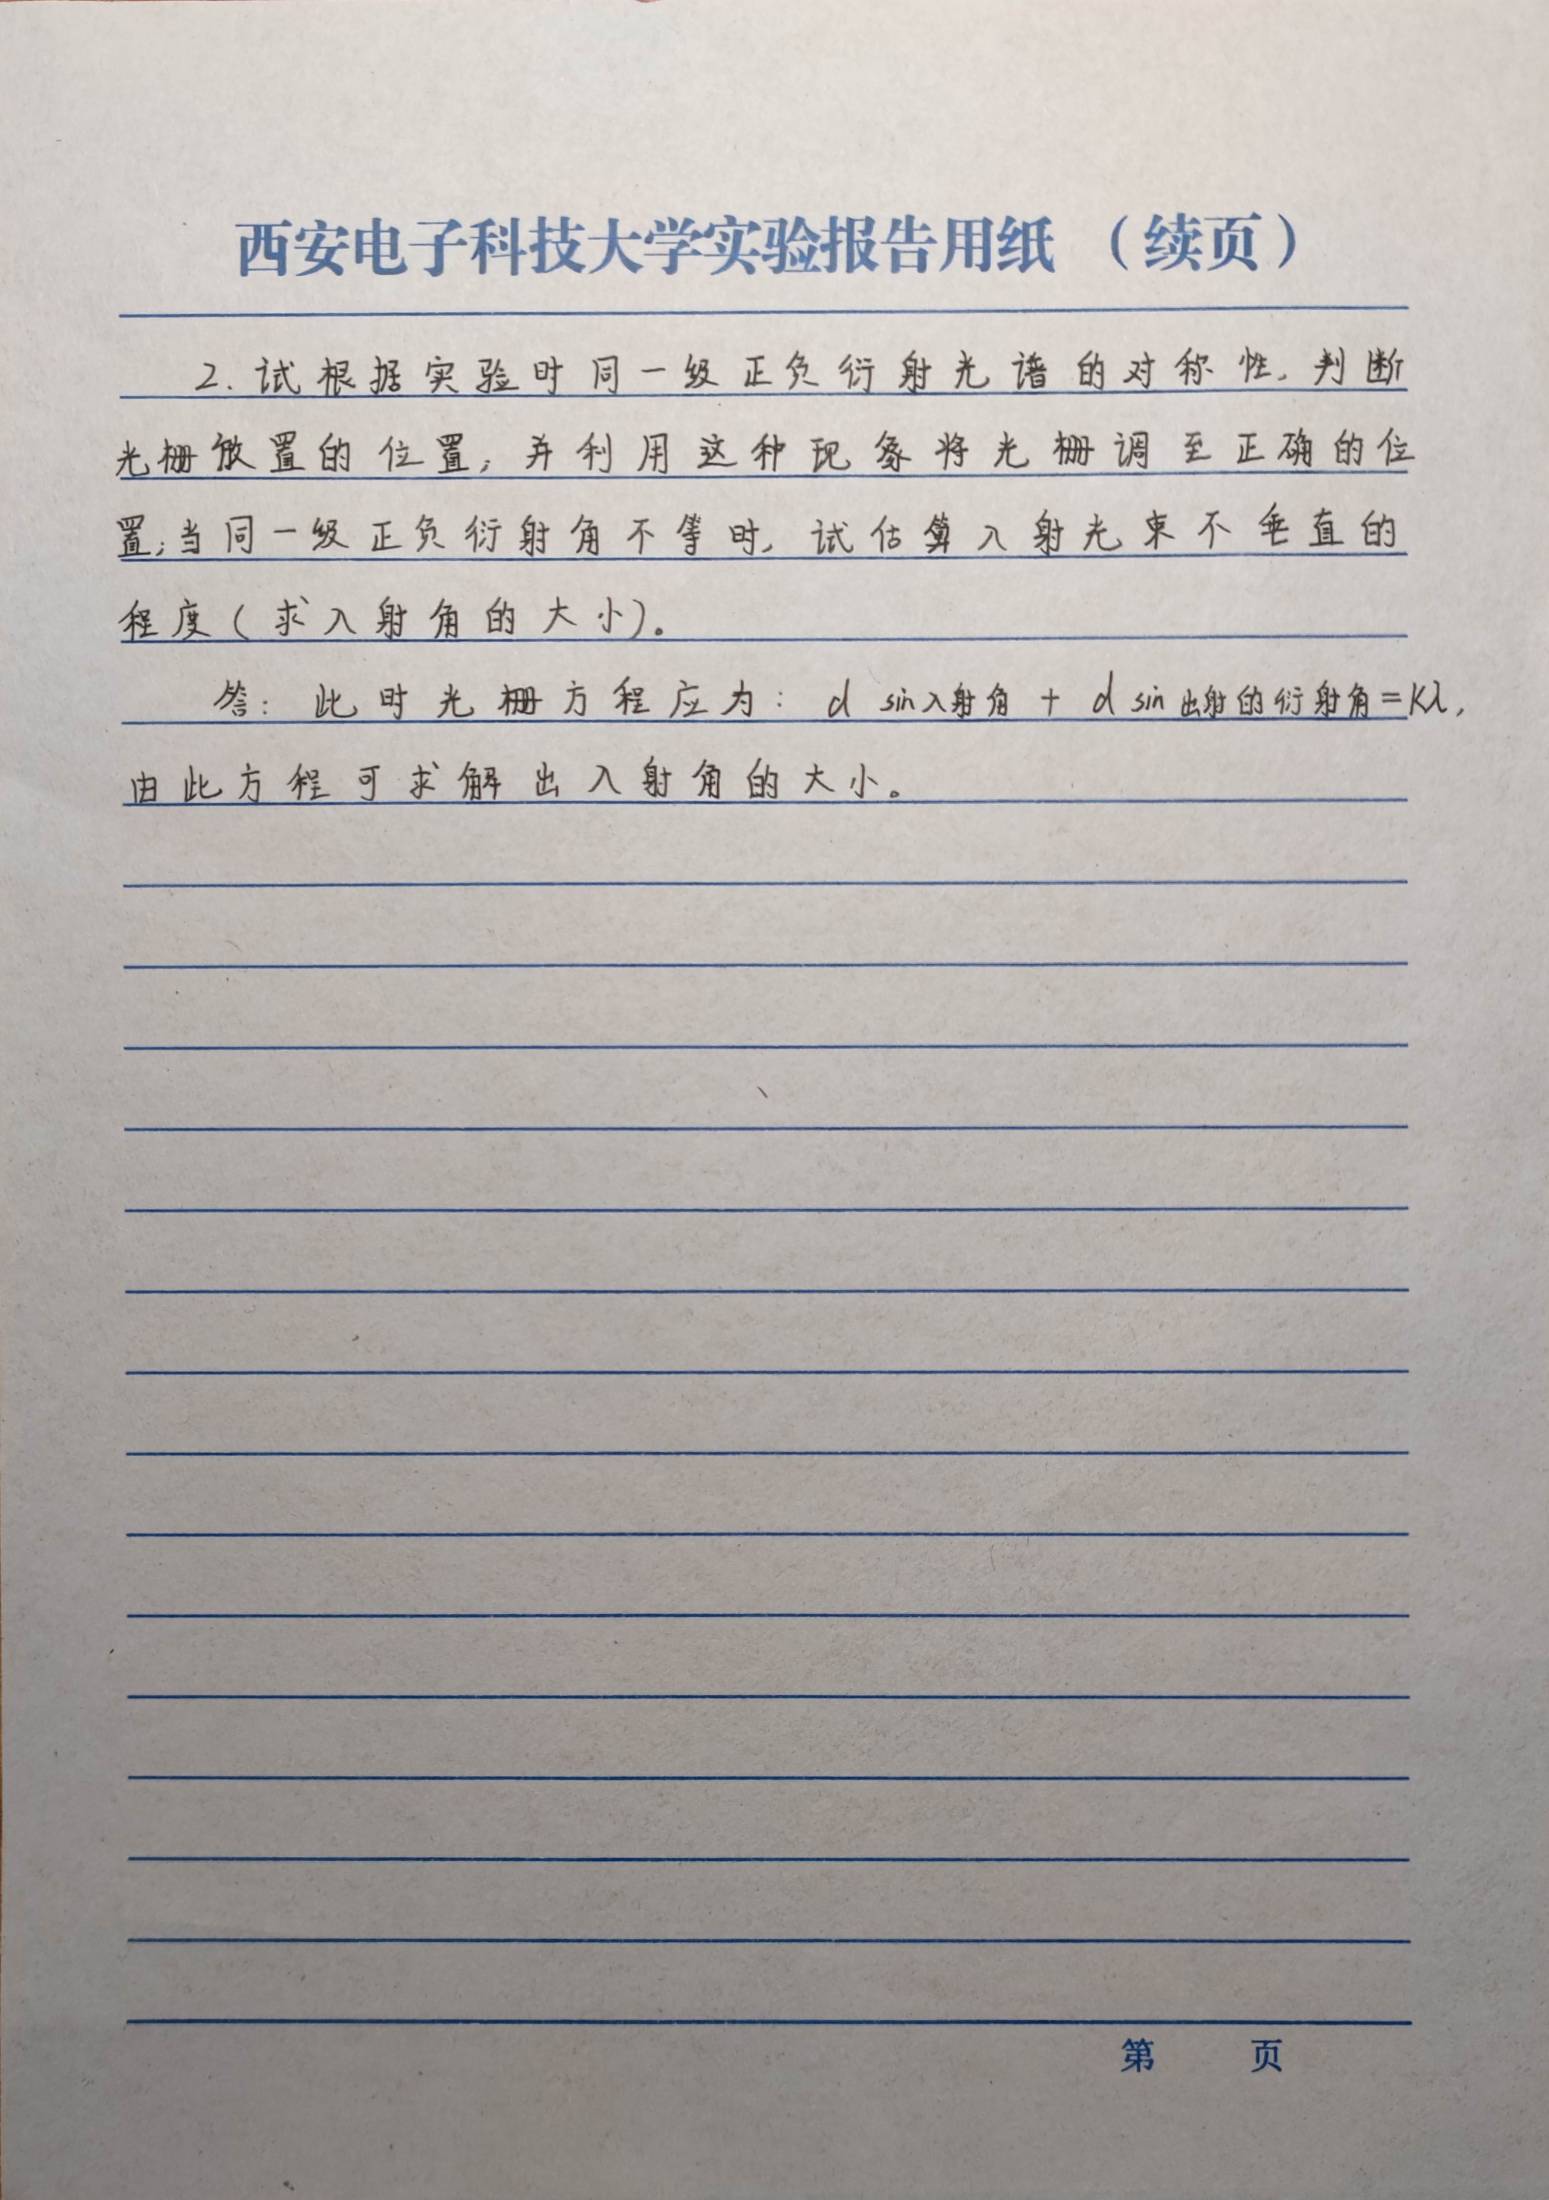 西安电子科技大学实验报告用纸 （续页）
2. 试根据实验时同一级正负衍射光谱的对称性, 判断
光栅放置的位置, 并利用这种现象将光栅调至正确的位
置;当同一级正负衍射角不等时, 试估算入射光束不垂直的
程度(求入射角的大小)。
答: 此时光栅方程应为: d sin入射角 + d sin出射的衍射角=Kλ,
由此方程可求解出入射角的大小。
第 页